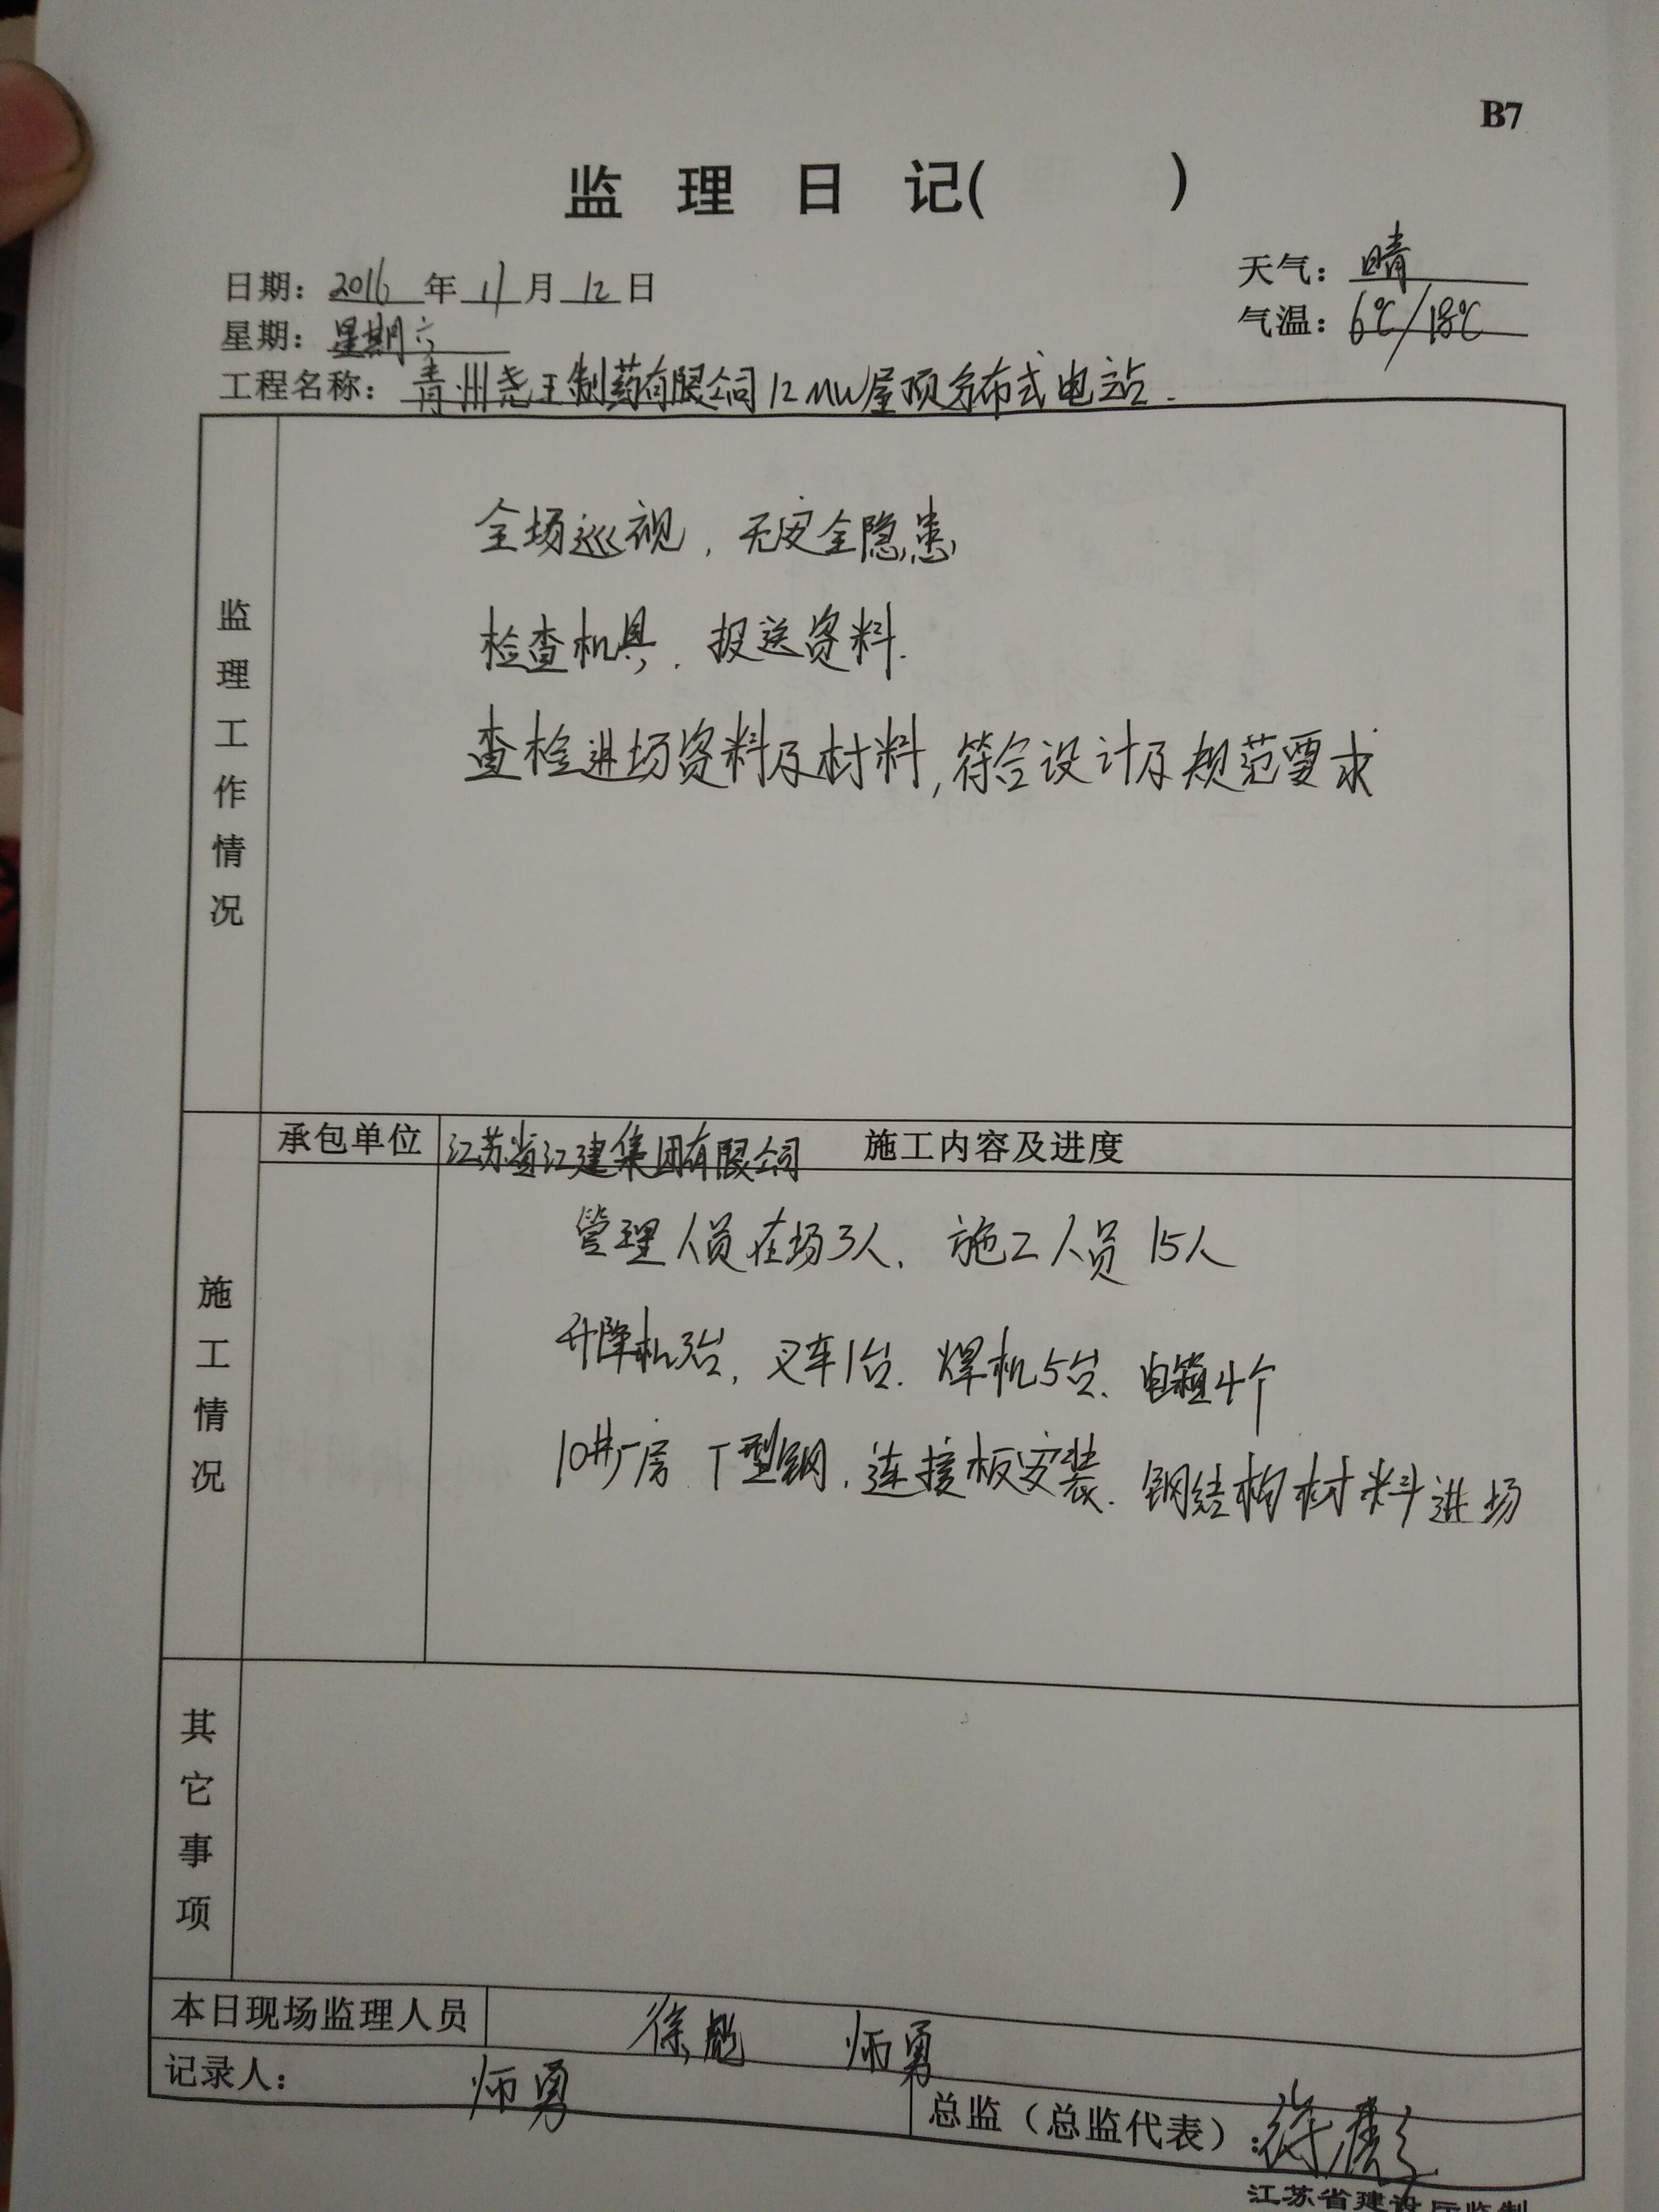 B7
监理日记( )
日期：2016年11月12日
天气：晴
星期：星期六
气温：6℃/18℃
工程名称：青州尧王制药有限公司12MW屋顶分布式电站.
监理工作情况
全场巡视，无安全隐患
检查机具，报送资料.
查检进场资料及材料,符合设计及规范要求
承包单位
江苏省江建集团有限公司
施工内容及进度
施工情况
管理人员在场3人，施工人员15人
升降机3台，叉车1台、焊机5台、电箱4个
10#厂房T型钢，连接板安装、钢结构材料进场
其它事项
本日现场监理人员
徐彪 师勇
记录人：师勇
总监（总监代表）：徐彪
江苏省建设厅监制